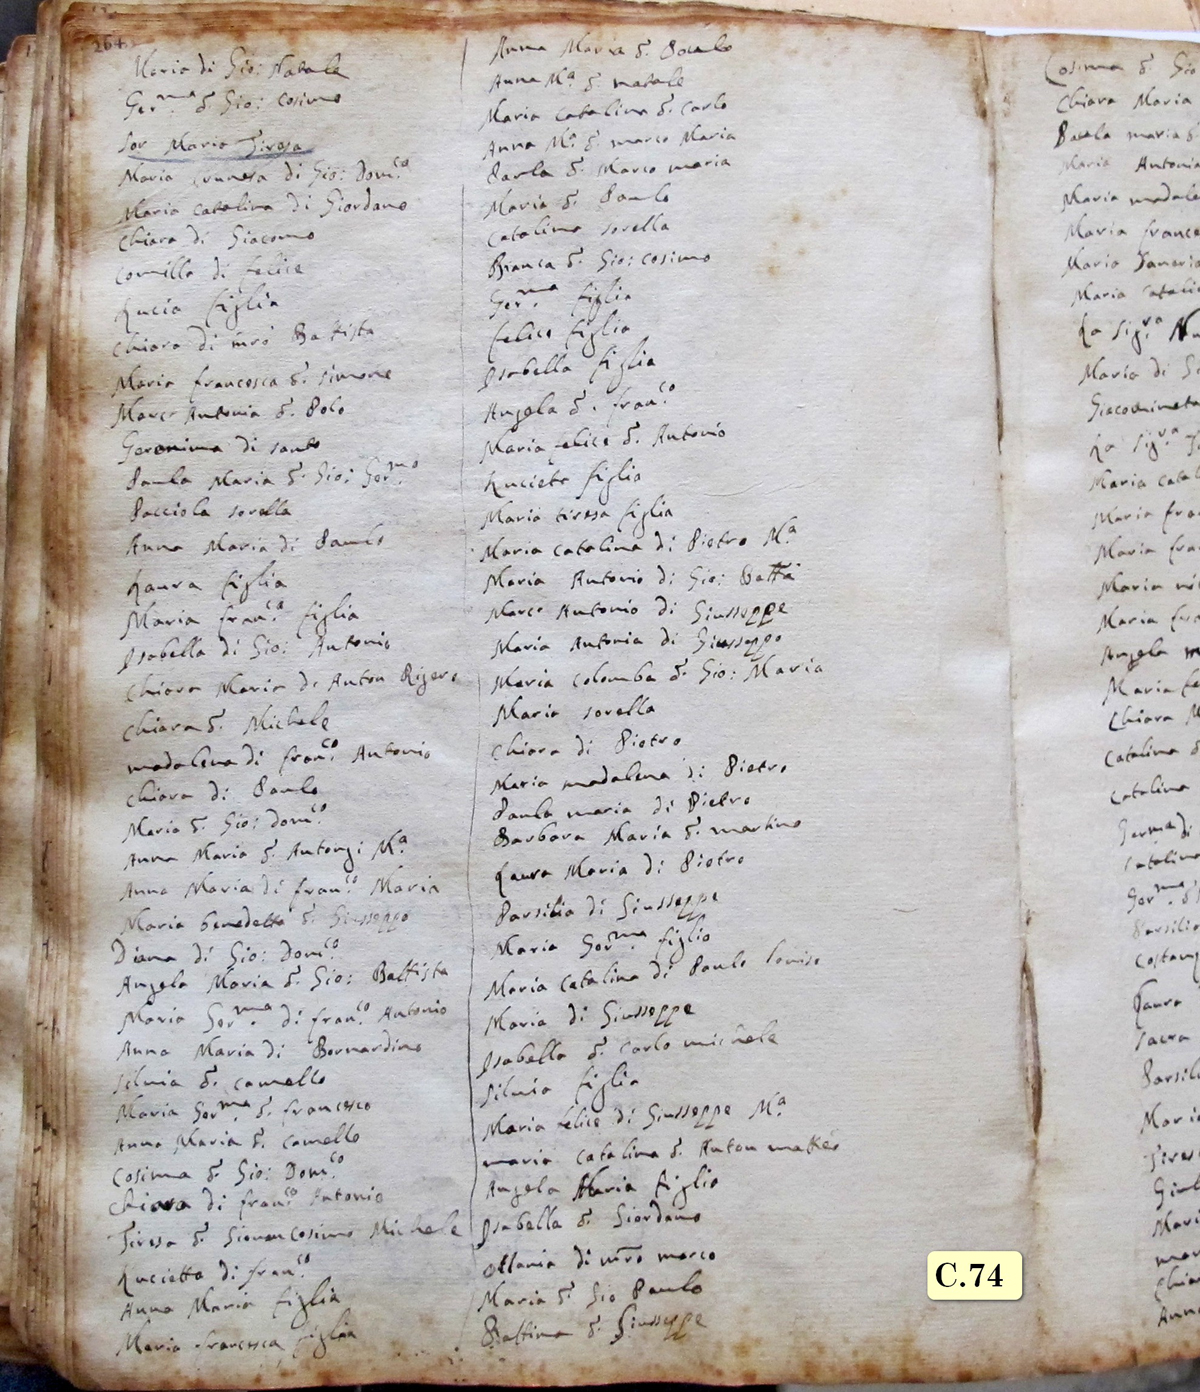 264
Maria di Gio: Natale
Ger.ma d. Gio: Cosimo
Sor Maria Tiresa
Maria di Gio: Dom.co
Maria Catalina di Giordano
Chiara di Giacomo
Comilla di felice
Lucia figlia
Chiara di mro Battista
Maria francesca d. simone
Marco Antonia d. Polo
Geronima di santo
Paula Maria d. Gio: Ger.mo
Pacciola sorella
Anna Maria di Paulo
Laura figlia
Maria fran.ca figlia
Isabella di Gio: Antonio
Chiara Maria di Anton Rigero
Chiara d. Michele
madalena di fran.co Antonio
Chiara di Paulo
Maria d. Gio: Dom.co
Anna Maria d. Antongi M.a
Anna Maria di fran.co Maria
Maria benedetta d. Giuseppo
Diana di Gio: Dom.co
Angela Maria d. Gio: Battista
Maria Ger.ma di fran.co Antonio
Anna Maria di Bernardino
Silvia d. camello
Maria Ger.ma d. francesco
Anna Maria d. camello
Cosima d. Gio: Dom.co
Chiara di fran.co Antonio
Tiresa d. Giovancosimo Michele
Lucietta di fran.co
Anna Maria figlia
Maria francesca figlia
Anna Maria d. Pocalo
Anna M.a d. natale
Maria catalina d. carlo
Anna M.a d. marco Maria
Paula d. Marco maria
Maria d. Paulo
Catalina sorella
Bianca d. Gio: cosimo
Ger.ma figlia
felice figlia
Isabella figlia
Angela d. fran.co
Maria felice d. Antonio
Lucieta figlia
Maria tiresa figlia
Maria catalina di Pietro M.a
Maria Antonio di Gio: Batta
Marco Antonio di Giusseppe
Maria Antonia di Giusseppo
Maria colomba d. Gio: Maria
Maria sorella
Chiara di Pietro
Maria madalena di Pietro
Paula maria di Pietro
Barbara Maria d. martino
Laura Maria di Pietro
Parsilia di Giusseppe
Maria Ger.ma figlia
Maria Catalina di Paulo
Maria di Giusseppe
Isabella d. Carlo michele
Silvia figlia
Maria felice di Giusseppe M.a
maria catalina d. Anton matteo
Angela Maria figlia
Isabella d. Giordano
ottavia di mro marco
Maria d. Gio Paulo
Battina d. Giusseppe
Cosima d. Gio
Chiara Maria
Paula maria d.
Maria Antonia
Maria madale
Maria france
Maria
Maria Catali
La Sig.ra
Maria di
Giacomineta
La Sig.ra
Maria catal
Maria fran
Maria fra
Maria
Maria fra
Angela
Maria fe
Chiara M
Catalina d
Catalina
Ger.ma di
Catalina
Ger.ma d
Parsilia
Costan
Laura
Parsili
Maria
Tires
Giul
Mari
mar
Chia
Anna
C.74